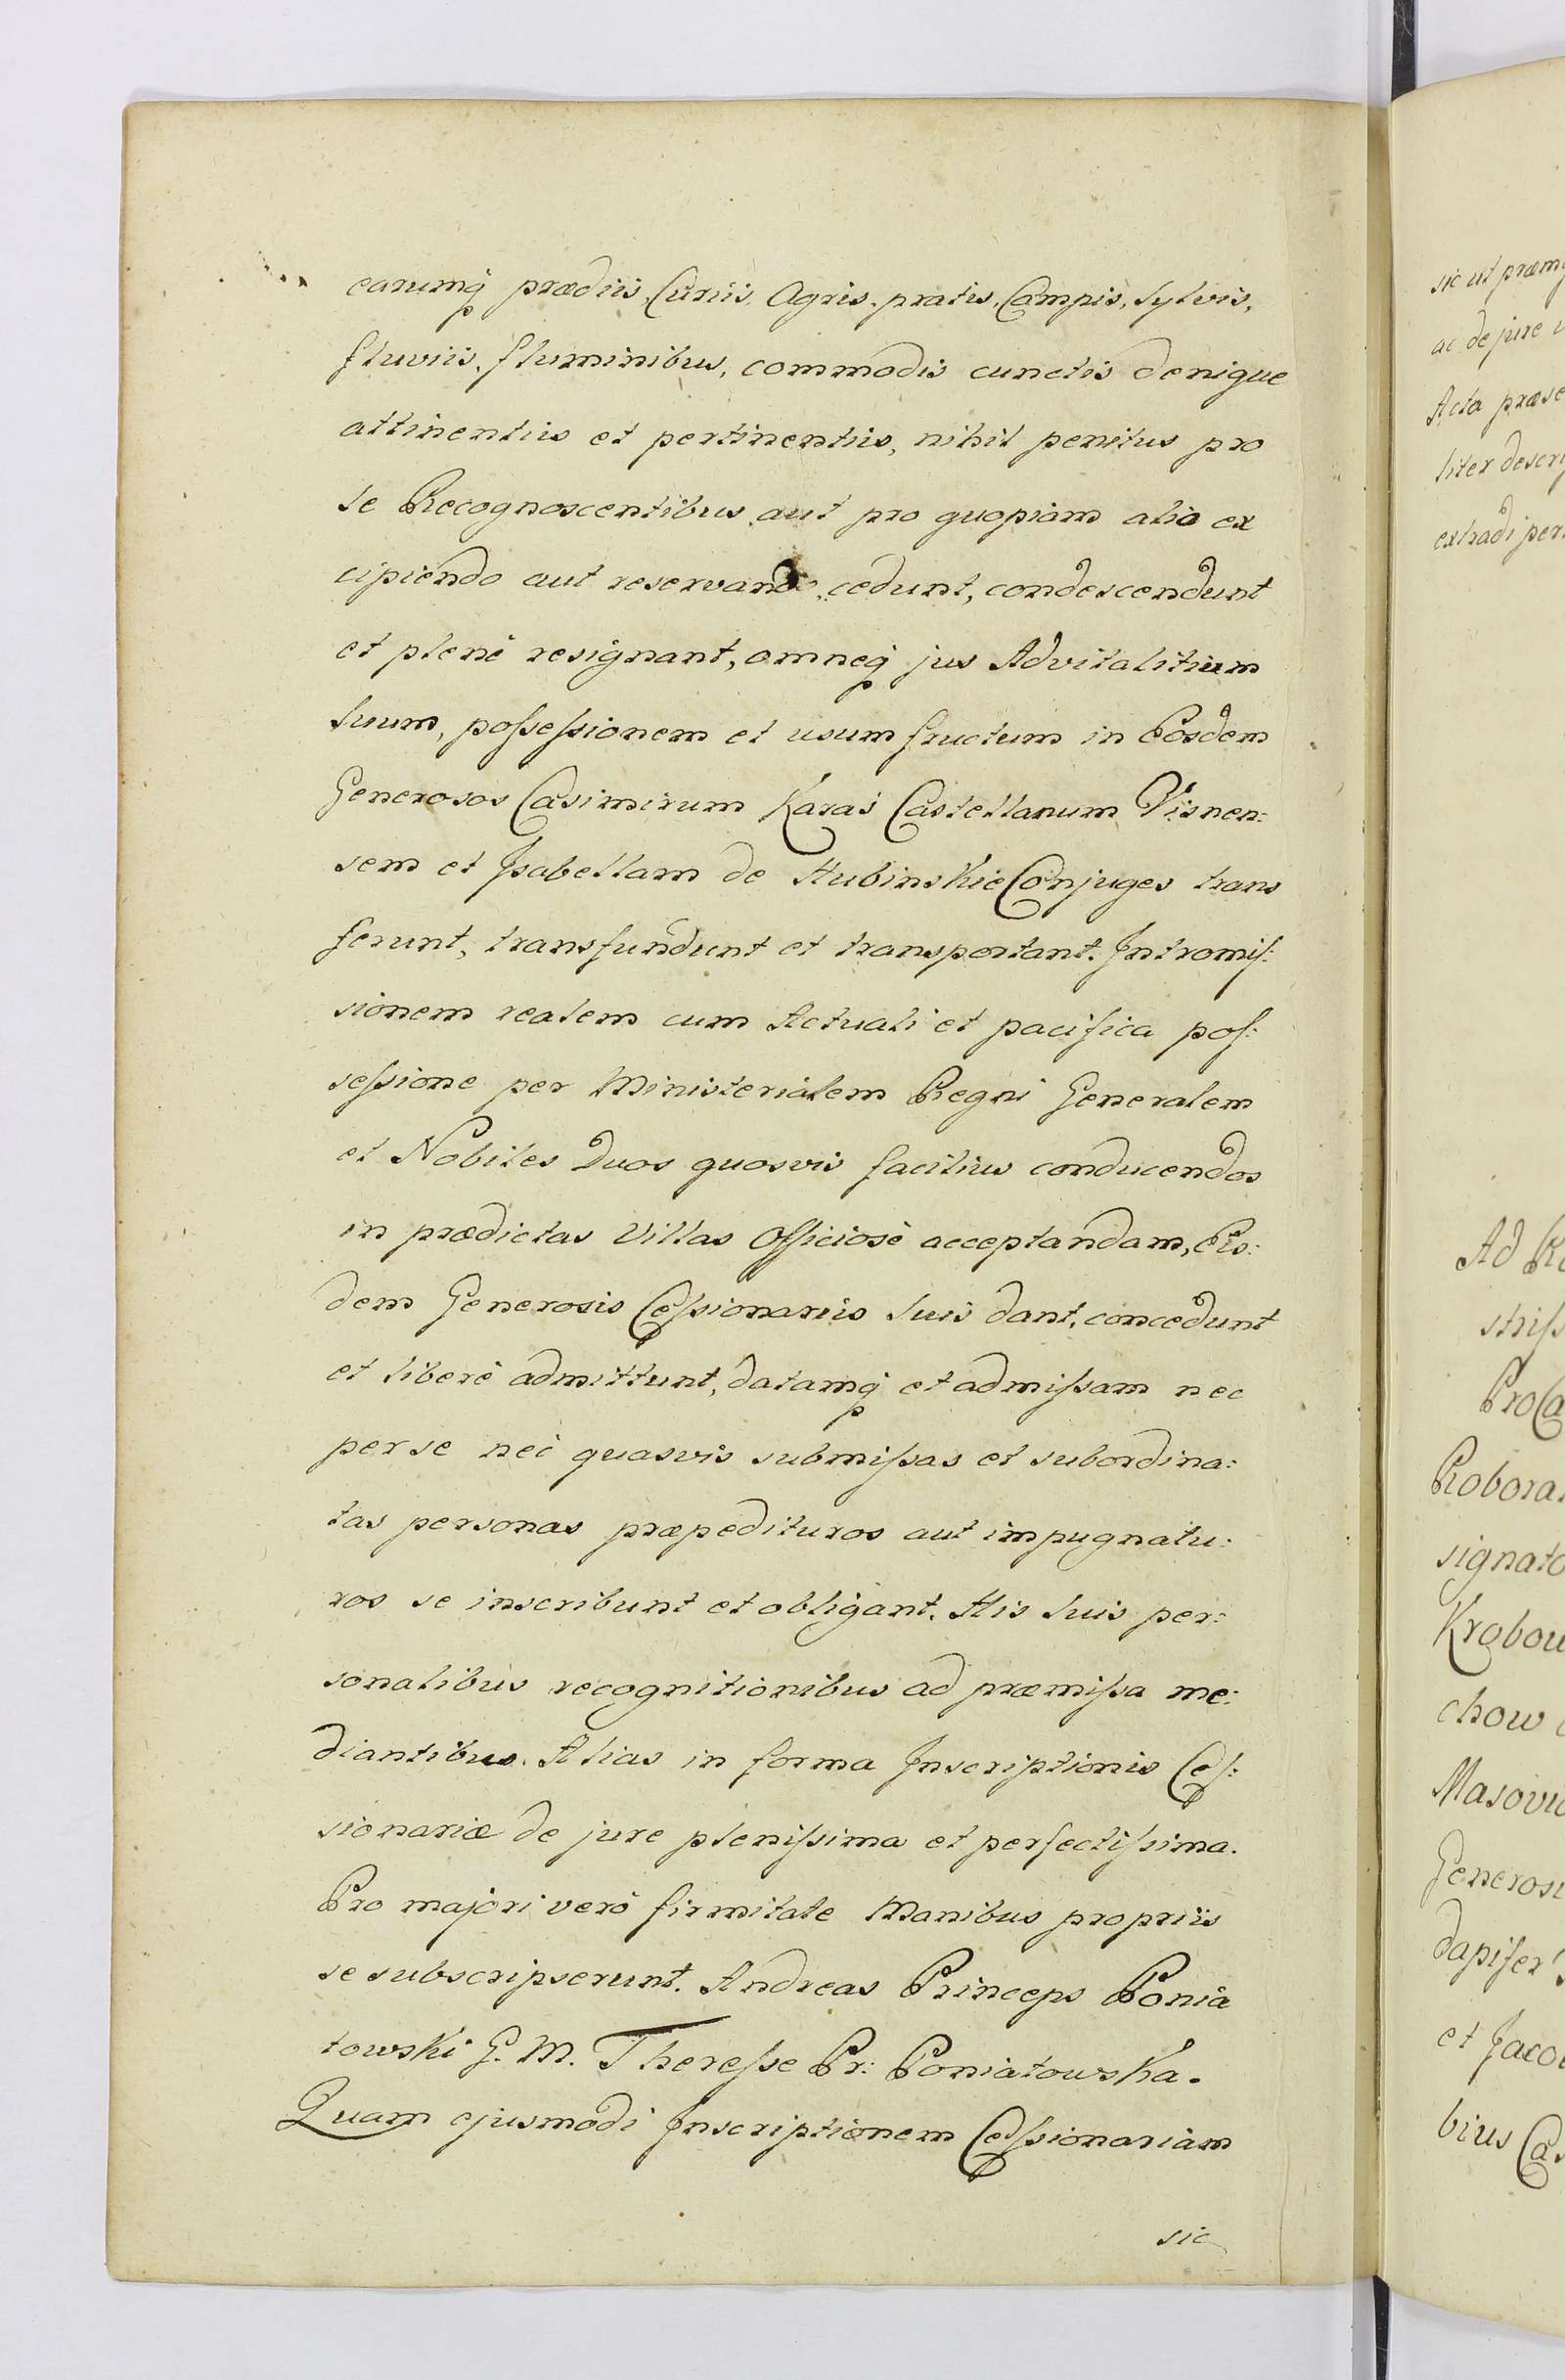 earumq́ prædiis, Curiis, Agris, pratis, Campis, Sylvis,
fluviis, fluminibus, commodis cunctis denique
attinentiis et pertinentiis, nihil penitus pro
se Recognoscentibus aut pro quopiam alio ex
cipiendo aut reservando cedunt, condescendunt
et plenè resignant, omneq́ jus Advitalitium
suum, poſseſsionem et usum fructum in Eosdem
Generosos Casimirum Karaś Castellanum Visnen:
sem et Isabellam de Hubinskie Conjuges trans
ferunt, transfundunt et transportant. Intromiſ:
sionem realem cum Actuali et pacifica poſ:
seſsione per Ministerialem Regni Generalem
et Nobiles Duos quosvis facilius conducendos
in prædictas Villas Officiosè acceptandam, Eis:
dem Generosis Ceſsionariis suis dant, concedunt
et liberè admittunt, datamq́ et admiſsam nec
per se nec quasvis submiſsas et subordina:
tas personas præpedituros aut impugnatu:
ros se inscribunt et obligant. His suis per:
sonalibus recognitionibus ad præmiſsa me:
diantibus. Alias in forma Inscriptionis Ceſ:
sionariæ de jure pleniſsima et perfectiſsima.
Pro majori verò firmitate Manibus propriis
se subscripserunt. Andreas Princeps Ponia
towski G. M. Thereſse Pr: Poniatowska.
Quam ejusmodi Inscriptionem Ceſsionariam
sic
sic ut præm
ac de jure
Acta præse
liter descri
extradi per
Ad
striſs
Pro Ca
Robora
signato
Krobow
chow
Masovi
Generosi
dapifer
et Jaco
bius Cas